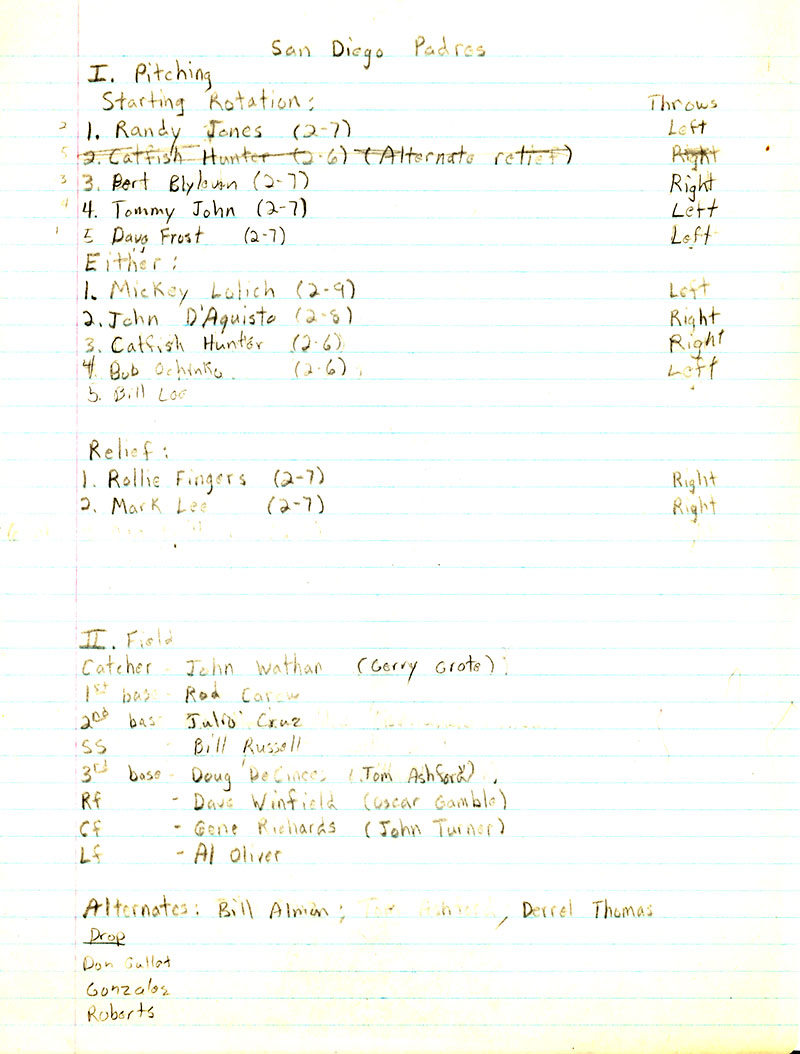 San Diego Padres
I. Pitching
Starting Rotation: Throws
2 1. Randy Jones (2-7) Left
5 2. Catfish Hunter (2-6) (Alternate relief) Right
3 3. Bert Blyleven (2-7) Right
4 4. Tommy John (2-7) Left
1 5 Dave Frost (2-7) Left
Either:
1. Mickey Lolich (2-9) Left
2. John D'Aquisto (2-8) Right
3. Catfish Hunter (2-6) Right
4 Bob Ochinko (2-6) Left
5. Bill Lee
Relief:
1. Rollie Fingers (2-7) Right
2. Mark Lee (2-7) Right
II. Field
Catcher - John Wathan (Gerry Grote)
1st bas - Rod Carew
2nd bas - Julio Cruz
SS - Bill Russell
3rd base - Doug DeCinces (Tom Ashford)
Rf - Dave Winfield (Oscar Gamble)
Cf - Gene Richards (John Turner)
Lf - Al Oliver
Alternates: Bill Almon; Tom Ashford, Derrel Thomas
Drop
Don Gullet
Gonzalez
Roberts